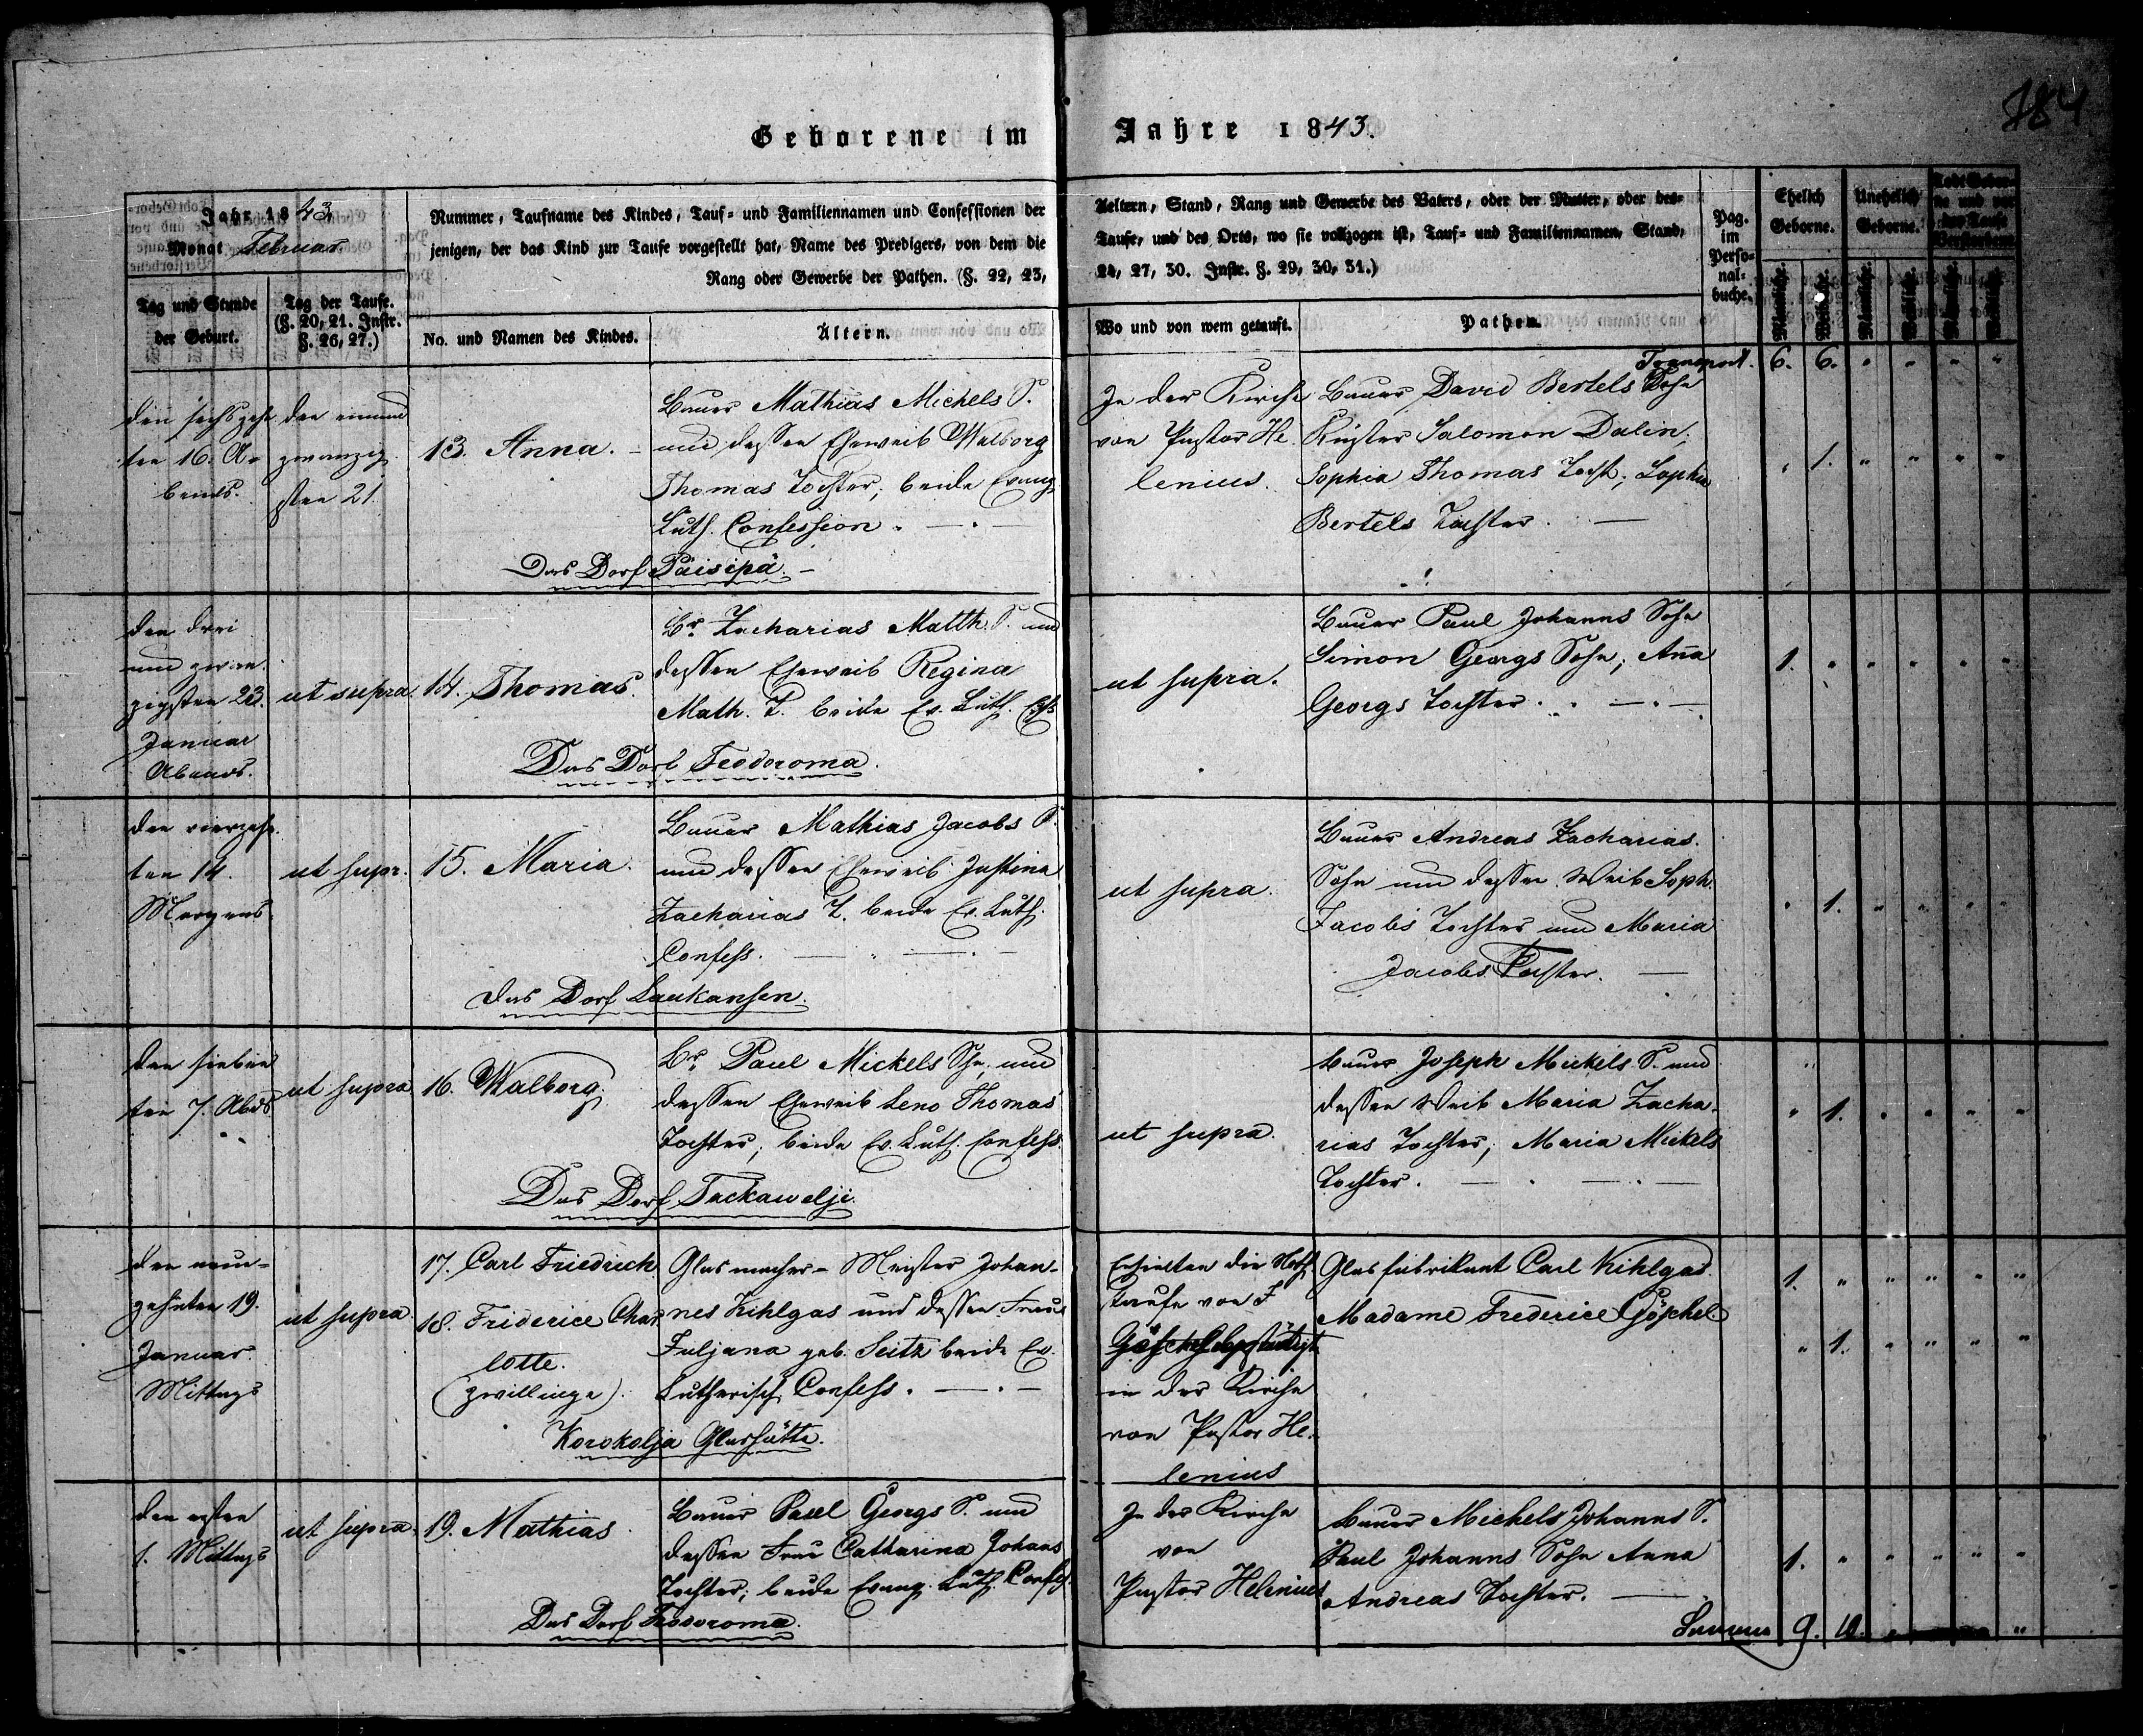 184
Geborene im Jahre 1843.
Jahr 1843
Monat Februar
Nummer, Taufname des Kindes, Tauf- und Familiennamen und Confessionen der
jenigen, der das Kind zur Taufe vorgestellt hat, Name des Predigers, von dem die
Rang oder Gewerbe der Pathen. (§. 22, 23,
Aeltern, Stand, Rang und Gewerbe des Vaters, oder der Mutter, oder des-
Taufe, und des Orts, wo sie vollzogen ist, Tauf- und Familiennamen, Stand,
24, 27, 30. Instr. §. 29, 30, 31.)
Pag.
im
Perso-
nal-
buche.
Ehelich
Geborne.
Unehelich
Geborne.
Todt Gebor-
ne und vor
der Taufe
Verstorbene
Tag und Stunde
der Geburt.
Tag der Taufe.
(§. 20, 21. Instr.
§. 26, 27.)
No. und Namen des Kindes.
Ältern.
Wo und von wem getauft.
Pathen.
Männliche.
Weibliche.
Männliche.
Weibliche.
Männliche.
Weibliche.
Transport. 6. 6. " " " "
den sechszehn
ten 16. A-
bends.
den einund
zwanzig
sten 21.
13. Anna.
Bauer Mathias Michels S.
und dessen Eheweib Walborg
Thomas Tochter; beide Evang.
Luth. Confession.
Das Dorf Päisipä.
In der Kirche
von Pastor He-
lenius.
Bauer David Bertels Sohn
Küster Salomon Dalin;
Sophia Thomas Tocht; Sophia
Bertels Tochter.
" 1. " " " "
den drei
und zwan-
zigsten 23.
Januar
Abends.
ut supra
14. Thomas.
Br. Zacharias Matth. S. und
dessen Eheweib Regina
Math. T. beide Ev. Luth.
Das Dorf Feodoroma.
ut supra.
Bauer Paul Johanns Sohn
Simon Georgs Sohn; Anna
Georgs Tochter.
1. " " " " "
den vierzehn
ten 14.
Morgens.
ut supr.
15. Maria.
Bauer Mathias Jacobs S.
und dessen Eheweib Justina
Zacharias T. beide Ev. Luth.
Confess.
das Dorf Laukansen.
ut supra.
Bauer Andreas Zacharias
Sohn und dessen Weib Soph.
Jacobs Tochter und Maria
Jacobs Tochter.
" 1. " " " "
den sieben
ten 7. Abds
ut supra
16. Walborg.
Br. Paul Mickels Sohn und
dessen Eheweib Leno Thomas
Tochter; beide Ev. Luth. Confess.
Das Dorf Tackawelje.
ut supra.
Bauer Joseph Mickels S. und
dessen Weib Maria Zacha-
rias Tochter; Maria Mickels
Tochter.
" 1. " " " "
den neun-
zehnten 19.
Januar.
Mittags
ut supra.
17. Carl Friedrich
18. Friderice Char-
lotte.
(Zwillinge).
Glasmacher-Meister Johan-
nes Kihlgas und dessen Frau
Juljana geb. Seitz beide Ev.
Lutherisch Confess.
Korokolja Glashütte.
Erhielten die Noth
taufe von F
Göschel bestätigt
in der Kirche
von Pastor He-
lenius
Glasfabrikant Carl Kihlgas.
Madame Frederice Göschel
1. " " " " "
" 1. " " " "
den ersten
1. Mittags
ut supra.
19. Mathias
Bauer Paul Georgs S. und
dessen Frau Catharina Johans
Tochter; beide Evang. Luth. Confess.
Das Dorf Feodoroma.
In der Kirche
von
Pastor Helenius
Bauer Michels Johanns S.
Paul Johanns Sohn Anna
Andreas Tochter.
1. " " " " "
Summa 9. 10.